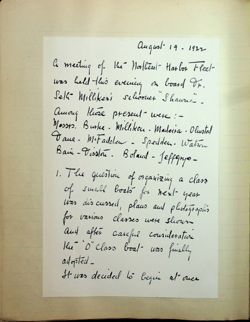 August 19 - 1922
A meeting of the Northeast Harbor Fleet
was held this evening on board Dr.
Seth Milliken's schooner "Shawna" -
Among those present were: -
Messrs. Burke - Milliken - Madeira - Olmsted
Dane - McFadden - Spedden - Watson
Bain - Thurston - Boland - Jefferys -
1. The question of organizing a class
of small boats for next year
was discussed, plans and photographs
for various classes were shown
and after careful consideration
the "O" Class boat was finally
adopted -
It was decided to begin at once